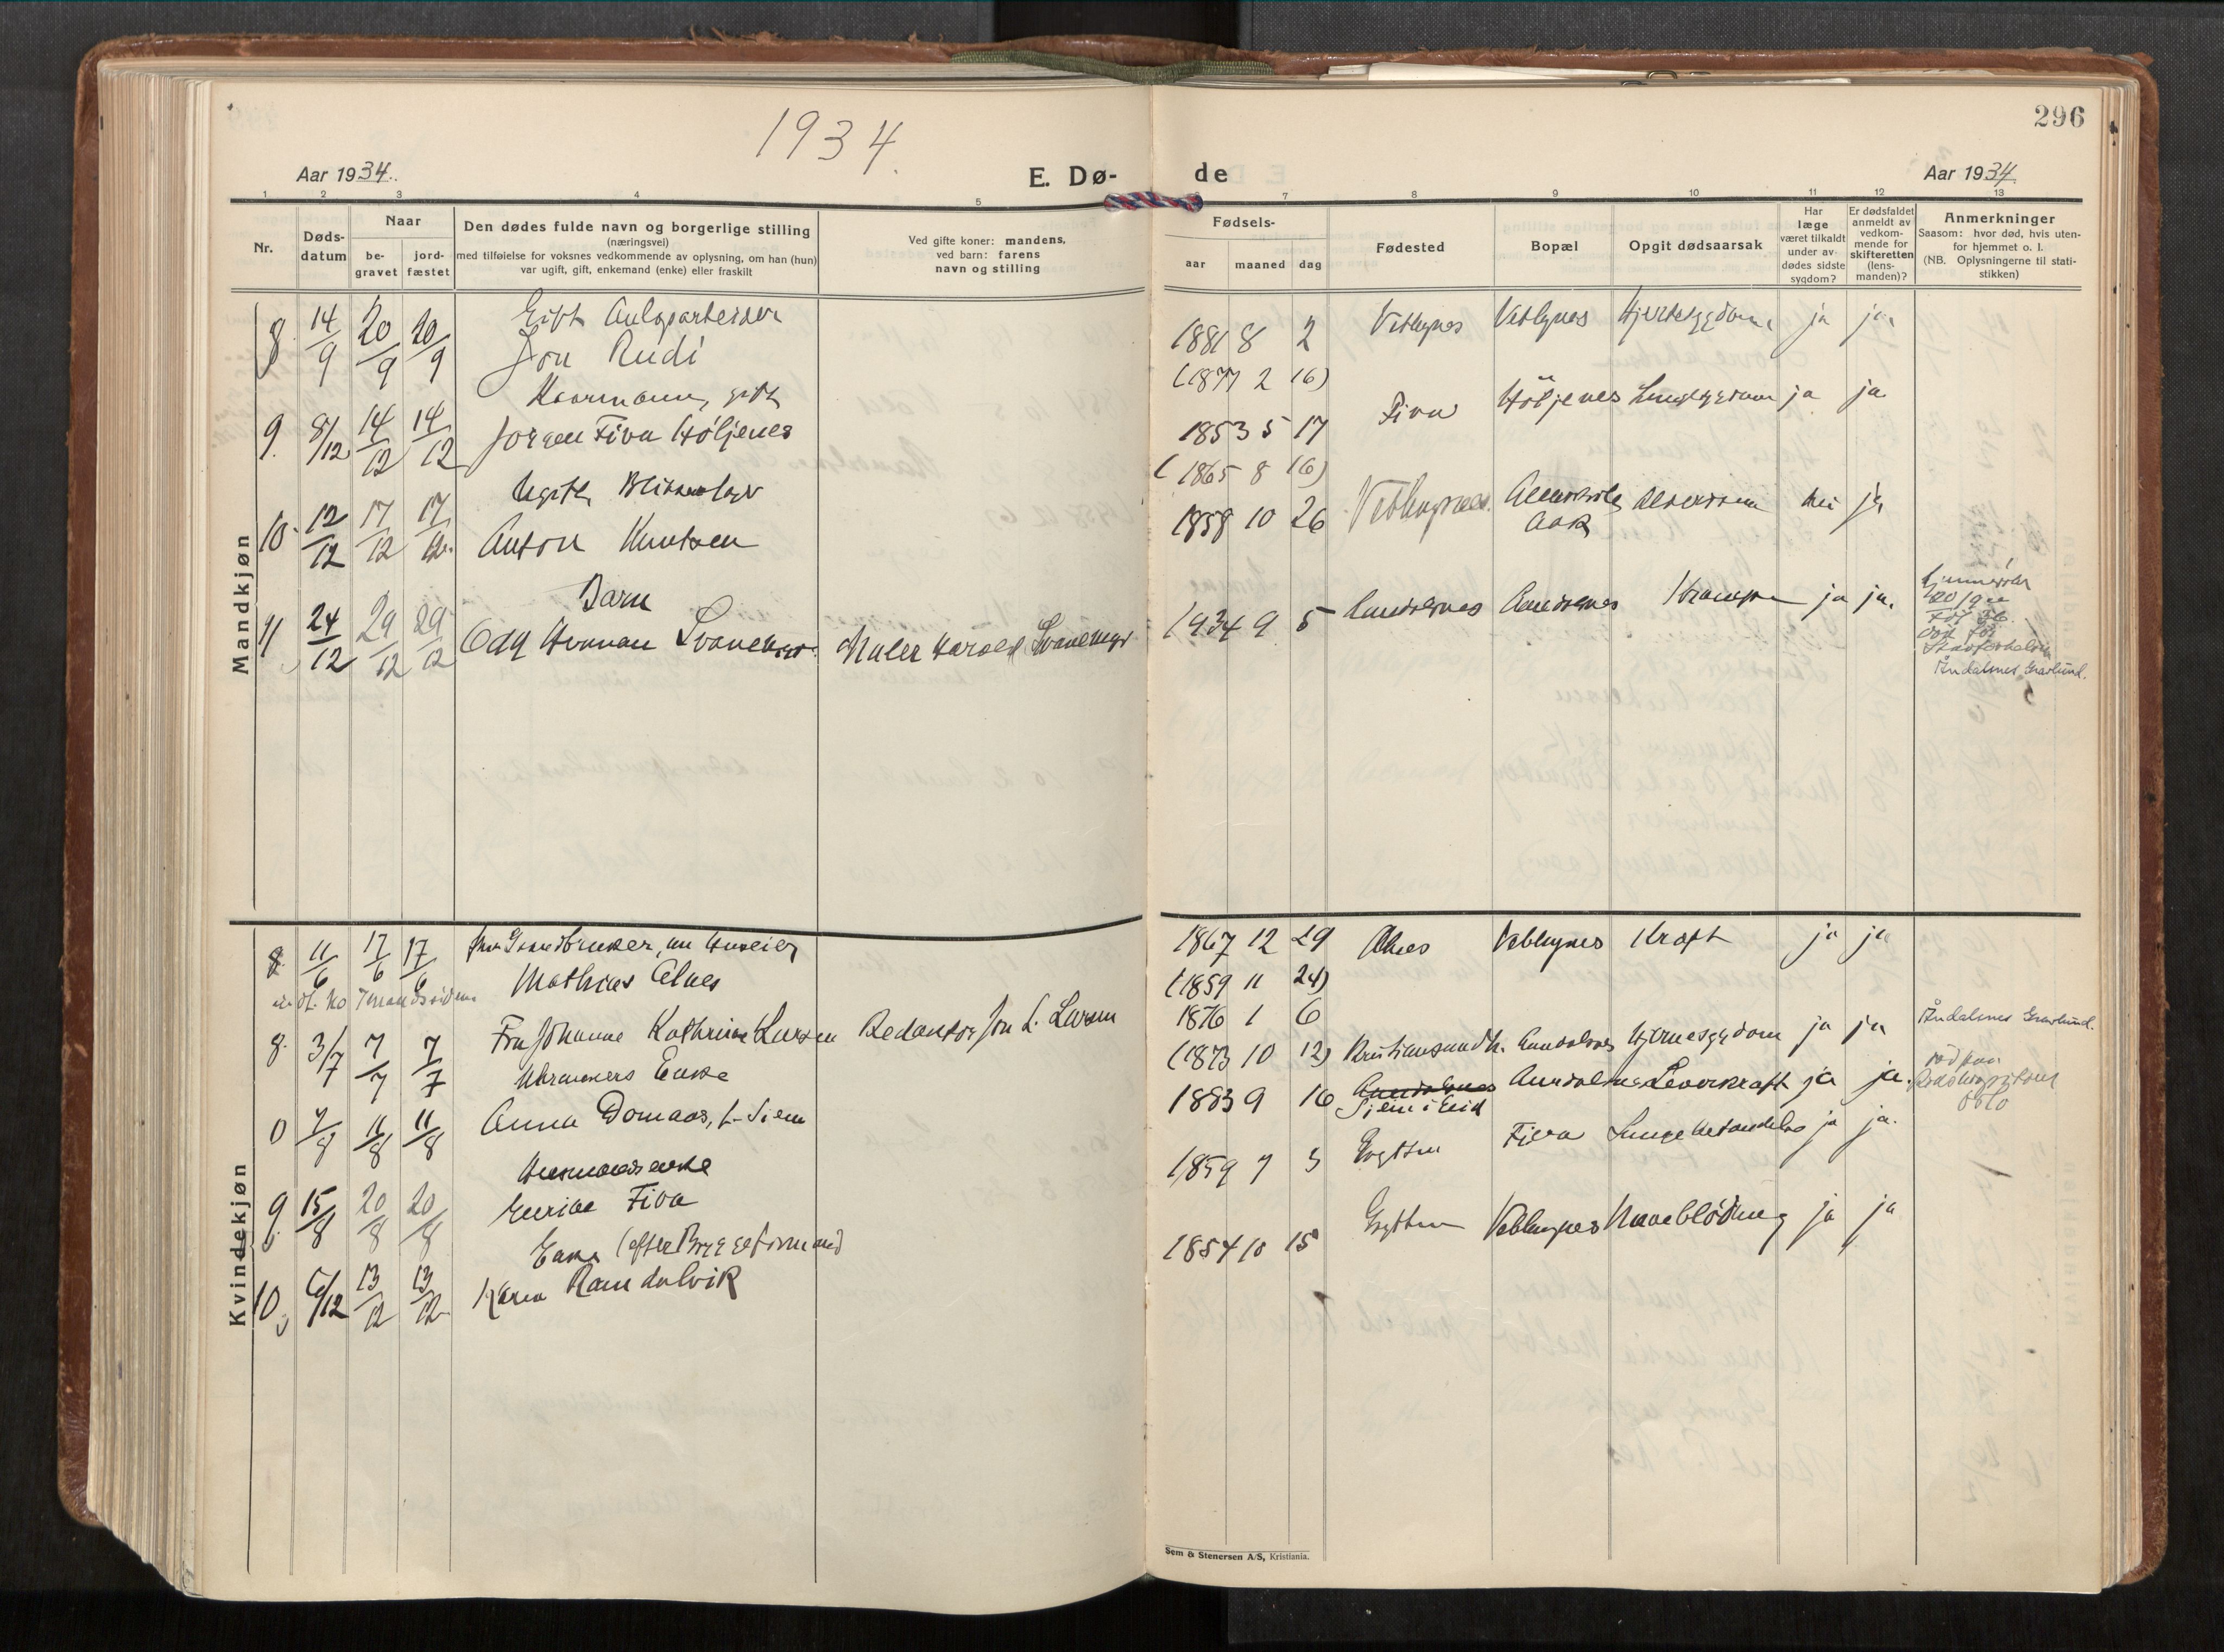 1934.
296
Aar 1934.
E. Dø-
de
Aar 1934
1 2 3 4 5 6 7 8 9 10 11 12 13
Nr.
Døds-
datum
Naar
be-
gravet
jord-
fæstet
Den dødes fulde navn og borgerlige stilling
(næringsvei)
med tilføielse for voksnes vedkommende av oplysning, om han (hun)
var ugift, gift, enkemand (enke) eller fraskilt
Ved gifte koner: mandens,
ved barn: farens
navn og stilling
Fødsels-
aar maaned dag
Fødested
Bopæl
Opgit dødsaarsak
Har
læge
været tilkaldt
under av-
dødes sidste
sygdom?
Er dødsfaldet
anmeldt av
vedkom-
mende for
skifteretten
(lens-
manden)?
Anmerkninger
Saasom: hvor død, hvis uten-
for hjemmet o. l.
(NB. Oplysningerne til stati-
stikken)
Mandkjøn
Gift Anlegsarbeider
8 14/9 20/9 20/9 Jon Rudi 1881 8 2 Veblugnes Veblugnes Hjertesygdom ja ja
(1877 2 16)
Kaarmann, gift
9. 8/12 14/12 14/12 Jørgen Fiva Höljenes 1853 5 17 Fiva Höljenes Lungesygdom ja ja
(1865 8 16)
Ugift, Blikkenslager
10. 12/12 17/12 17/12 Anton Knutsen 1858 10 26 Veblugnes. Aak nei ja
Barn
11 24/12 29/12 29/12 Odd Svanemyr Maler Harald Svanemyr 1934 9 5 Aandalsnes Aandalsnes Krampe ja ja.
Åndalsnes Gravlund.
Kvindekjøn
8 11/6 17/6 17/6 Gaardbruker, Huseier 1867 12 29 Alnes Veblugnes Kraft ja ja
Mathias Alnes (1859 11 24)
No 7 Mandsiden
8. 3/7 7/7 7/7 Fru Johanne Kathrine Larsen Redaktør Jon L. Larsen 1876 1 6 Kristiansund N. Aandalsnes Hjernesygdom ja ja Åndalsnes Gravlund.
(1873 10 12)
Enke
0 7/8 11/8 11/8 Anna Domaas, f. Siem 1883 9 16 Aandalsnes Siem i Eid Aandalsnes Leverkraft ja ja.
Oslo
Husmandsenke
9. 15/8 20/8 20/8 Fiva 1859 7 3 Grytten Fiva Lungebetændelse ja ja.
Enke (efter Bryggeformand)
10. 6/12 13/12 13/12 Karen Ramdalvik 1854 10 15 Grytten Veblugnes ja ja
Sem & Stenersen A/S, Kristiania.